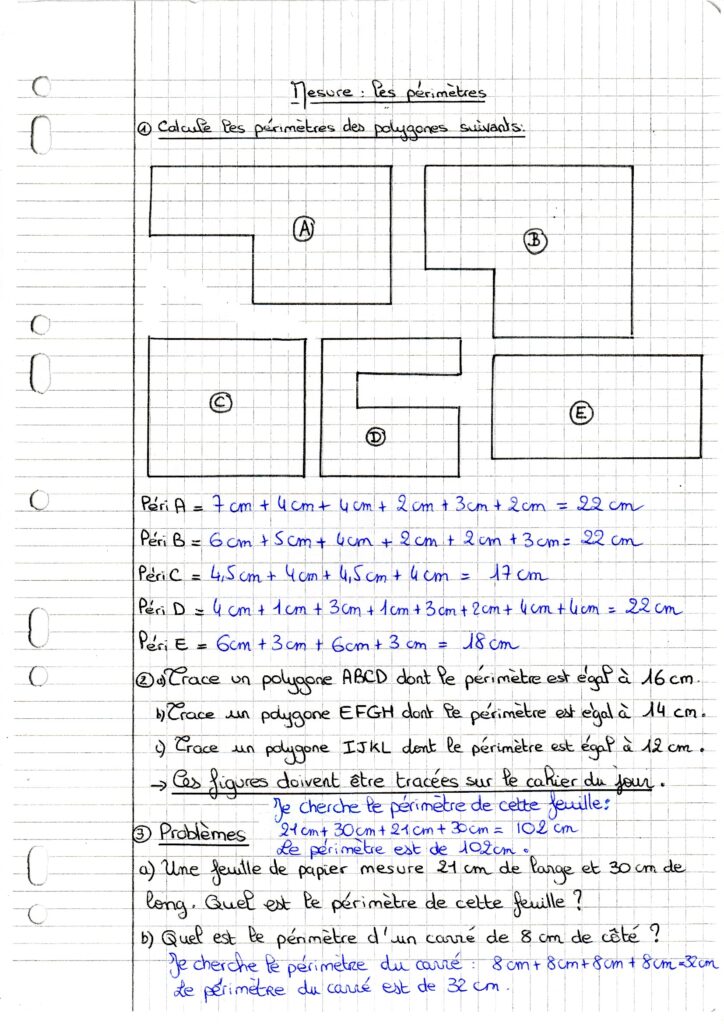 Mesure : les périmètres
① Calcule les périmètres des polygones suivants:
A
B
C
D
E
Péri A = 7 cm + 4 cm + 4 cm + 2 cm + 3 cm + 2 cm = 22 cm
Péri B = 6 cm + 5 cm + 4 cm + 2 cm + 2 cm + 3 cm = 22 cm
Péri C = 4,5 cm + 4 cm + 4,5 cm + 4 cm = 17 cm
Péri D = 4 cm + 1 cm + 3 cm + 1 cm + 3 cm + 2 cm + 4 cm + 4 cm = 22 cm
Péri E = 6 cm + 3 cm + 6 cm + 3 cm = 18 cm
② a) Trace un polygone ABCD dont le périmètre est égal à 16 cm.
b) Trace un polygone EFGH dont le périmètre est égal à 14 cm.
c) Trace un polygone IJKL dont le périmètre est égal à 12 cm.
→ Ces figures doivent être tracées sur le cahier du jour.
Je cherche le périmètre de cette feuille:
③ Problèmes 21 cm + 30 cm + 21 cm + 30 cm = 102 cm
Le périmètre est de 102 cm.
a) Une feuille de papier mesure 21 cm de large et 30 cm de
long. Quel est le périmètre de cette feuille ?
b) Quel est le périmètre d'un carré de 8 cm de côté ?
Je cherche le périmètre du carré : 8 cm + 8 cm + 8 cm + 8 cm = 32 cm
Le périmètre du carré est de 32 cm.